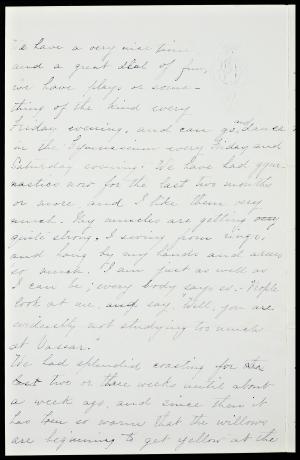 We have a very nice time
and a great deal of fun,
we have plays or some-
thing of the kind every
Friday evening, and can go and dance
in the Gymnasium every Friday and
Saturday evening. We have had gym-
nastics now for the last two months
or more and I like them very
much. My muscles are getting
quite strong. I swing from rings,
and hang by my hands and arms
so much. I am just as well as
I can be; every body says so. People
look at me, and say, "Well, you are
evidently not studying too much
at Vassar."
We had splendid coasting for
two or three weeks until about
a week ago, and since then it
has been so warm that the willows
are beginning to get yellow at the